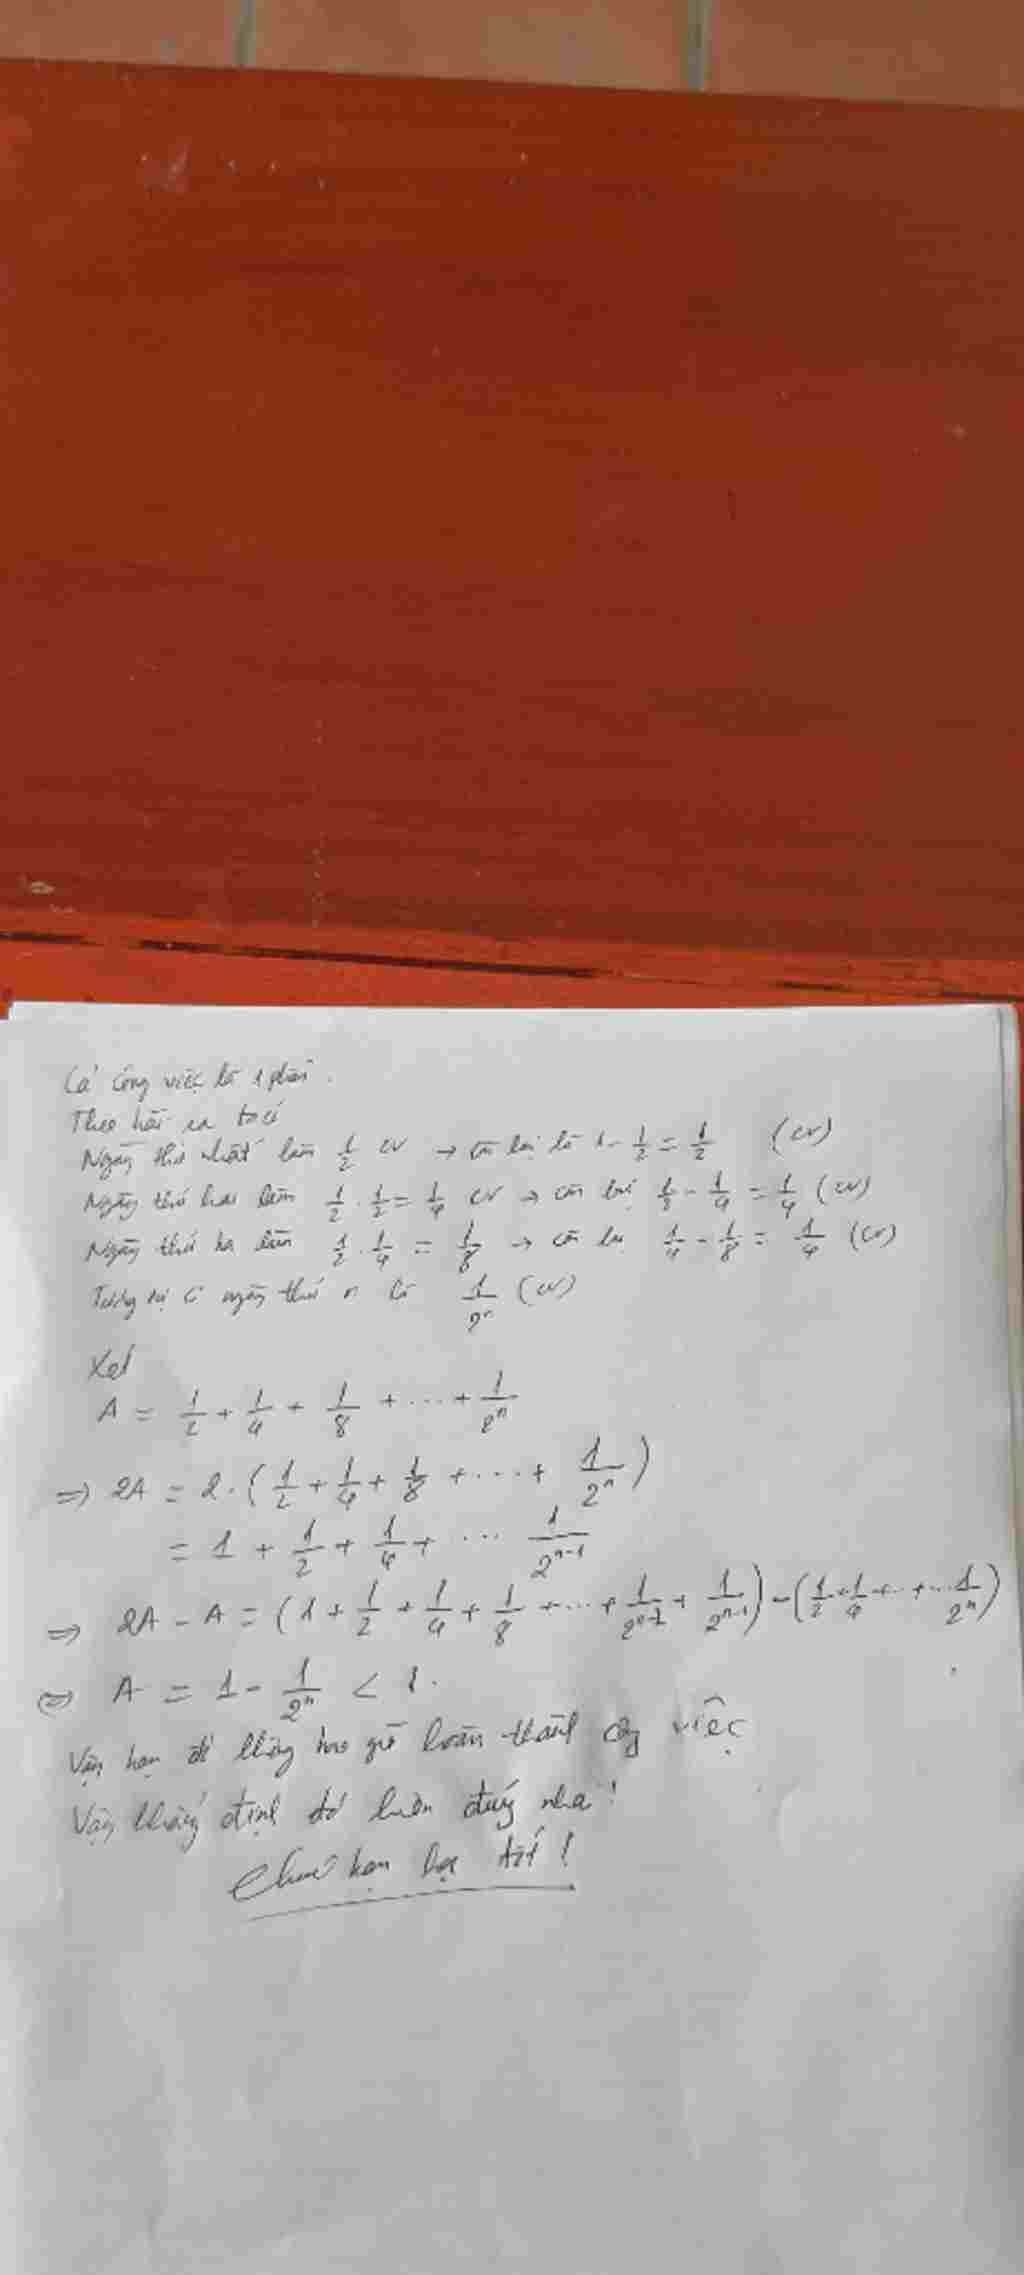 Cả công việc là 1 phần.
Theo bài ra ta có
Ngày thứ nhất làm 1/2 cv → còn lại là 1 - 1/2 = 1/2 (cv)
Ngày thứ hai làm 1/2 . 1/2 = 1/4 cv → còn lại 1/2 - 1/4 = 1/4 (cv)
Ngày thứ ba làm 1/2 . 1/4 = 1/8 → còn lại 1/4 - 1/8 = 1/4 (cv)
Tương tự có ngày thứ n là 1/2^n (cv)
Xét
A = 1/2 + 1/4 + 1/8 + ... + 1/2^n
=> 2A = 2.(1/2 + 1/4 + 1/8 + ... + 1/2^n)
= 1 + 1/2 + 1/4 + ... 1/2^(n-1)
=> 2A - A = (1 + 1/2 + 1/4 + 1/8 + ... + 1/2^(n-2) + 1/2^(n-1)) - (1/2 + 1/4 + ... + ... 1/2^n)
<=> A = 1 - 1/2^n < 1.
Vậy bạn đó không bao giờ hoàn thành công việc
Vậy khẳng định đó luôn đúng nha!
Chúc bạn học tốt!